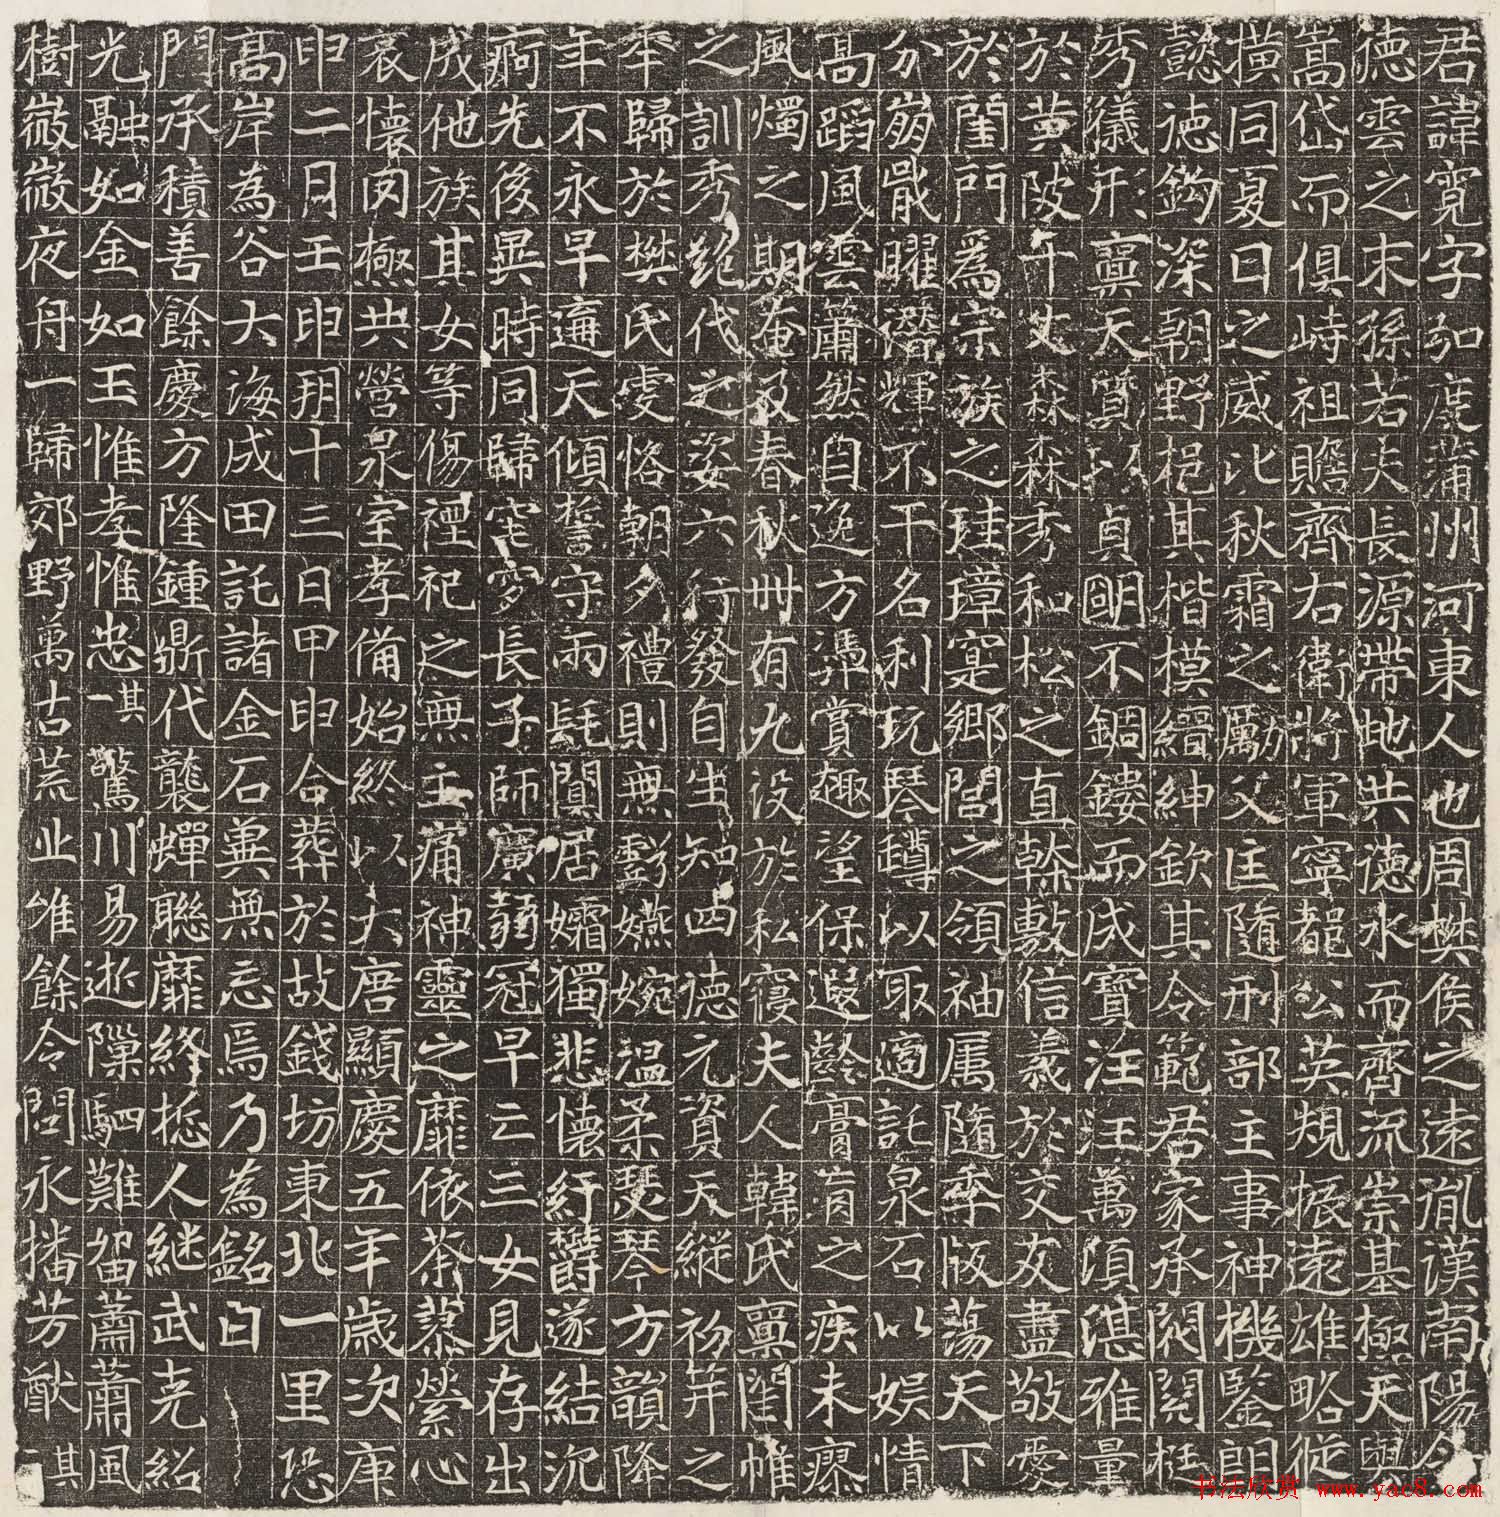 君諱寬字弘度蒲州河東人也周樊侯之遠胤漢南陽令
德雲之末孫若夫長源帶地共德水而齊流崇基極天與
嵩岱而俱峙祖贍齊右衛將軍寧都公英規振遠雄略從
橫同夏日之威比秋霜之勵父匡隨刑部主事神機鑒朗
懿德鈎深朝野挹其楷模縉紳欽其令範君家承閥閱挺
秀儀形稟天質以貞明不錮鏤而成寶汪汪萬頃湛雅量
於黃陂千丈森森秀和松之直幹敷信義於交友盡敬愛
於閨門為宗族之珪璋寔鄉閭之領袖属隨季版蕩天下
分崩戢曜潛輝不干名利玩琴罇以取適託泉石以娛情
高蹈風雲蕭然自逸方憑賞趣望保遐齡膏肓之疾未瘳
風燭之期奄及春秋卌有九沒於私寢夫人韓氏稟閨帷
之訓秀絕代之姿六行發自生知四德元資天縱初笄之
年歸於樊氏虔恪朝夕禮則無虧嬿婉溫柔瑟琴方韻降
年不永早遘天傾誓守兩髦闃居孀獨悲懷紆欝遂結沉
痾先後異時同歸窀穸長子師廣弱冠早亡三女見存出
成他族其女等傷禋祀之無主痛神靈之靡依荼蓼縈心
哀懷罔極共營泉室孝備始終以大唐顯慶五年歲次庚
申二月壬申朔十三日甲申合葬於故錢坊東北一里恐
高岸為谷大海成田託諸金石兼無忘焉乃為銘曰
門承積善餘慶方隆鍾鼎代襲蟬聯靡終人継武克紹
光融如金如玉惟孝惟忠其一驚川易逝隟駟難留蕭蕭風
樹嶶嶶夜舟一歸郊野萬古荒丘唯餘令問永播芳猷其
书法欣赏 www.yac8.com